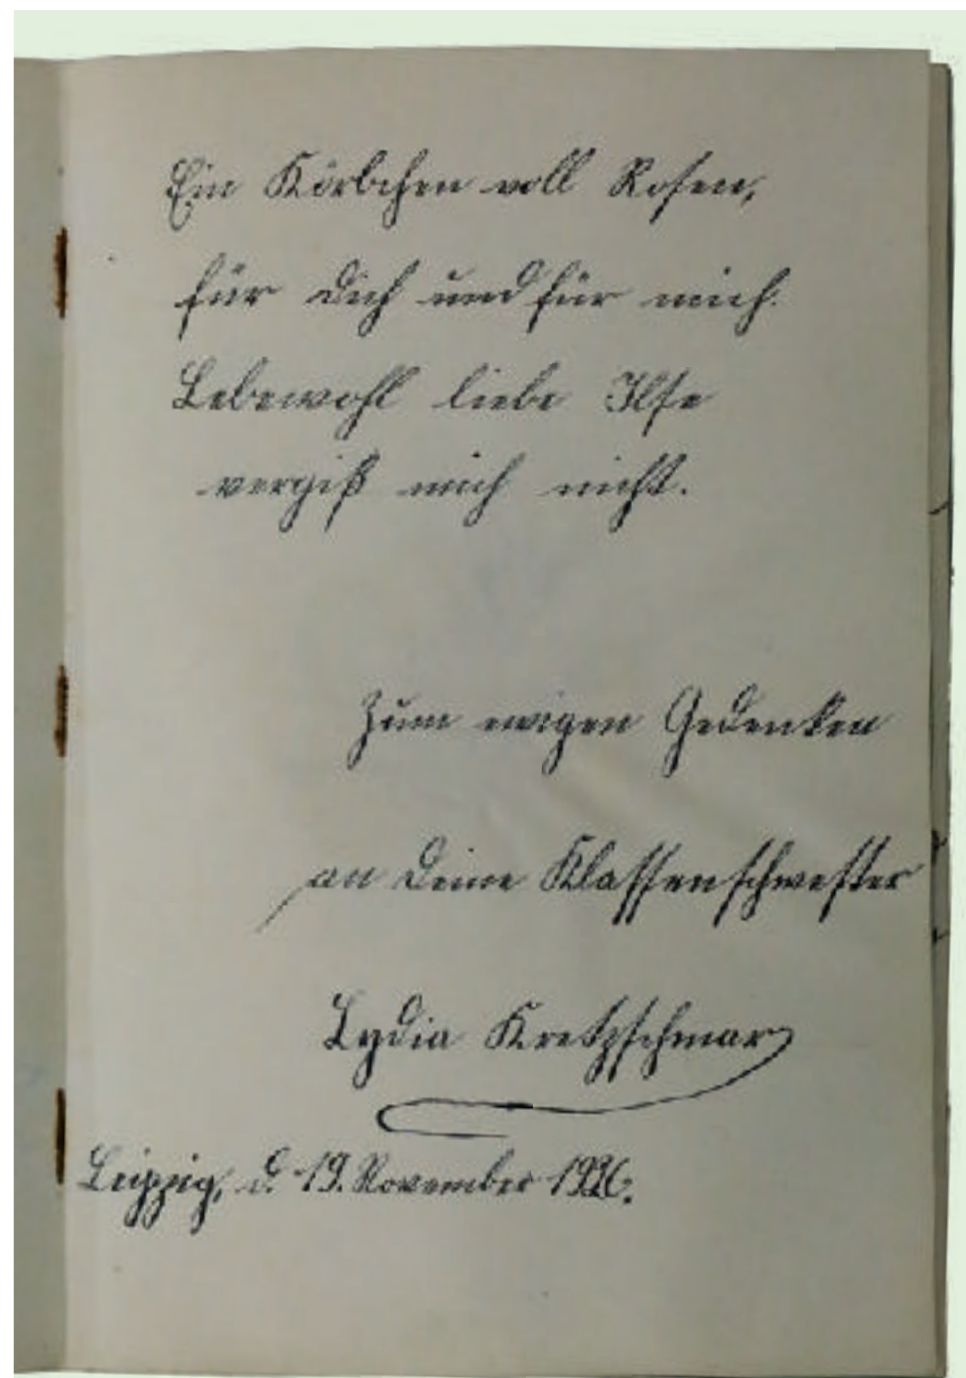 Ein Körbchen voll Rosen,
für dich und für mich.
Lebewohl liebe Ilse
vergiß mich nicht.
Zum ewigen Gedenken
an Deine Klassenschwester
Lydia Kretzschmar
Leipzig, d. 19. November 1926.